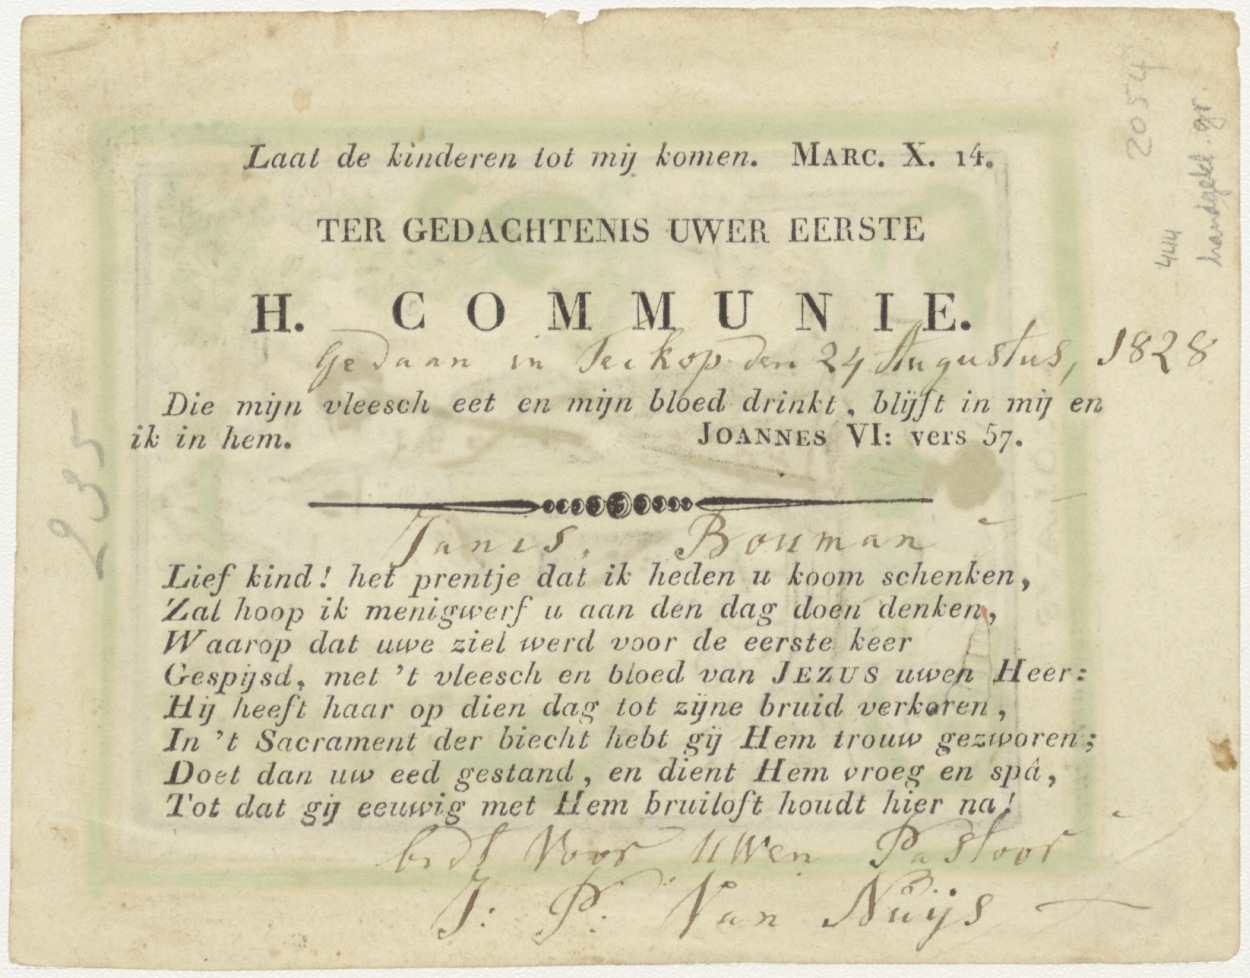 Laat de kinderen tot mij komen. MARC. X. 14.
TER GEDACHTENIS UWER EERSTE
H. COMMUNIE.
Gedaan in Teckop den 24 Augustus, 1828
Die mijn vleesch eet en mijn bloed drinkt, blijft in mij en
ik in hem. JOANNES VI: vers 57.
Janis. Bouman
Lief kind! het prentje dat ik heden u koom schenken,
Zal hoop ik menigwerf u aan den dag doen denken,
Waarop dat uwe ziel werd voor de eerste keer
Gespijsd, met 't vleesch en bloed van JEZUS uwen Heer:
Hij heeft haar op dien dag tot zijne bruid verkoren,
In 't Sacrament der biecht hebt gij Hem trouw gezworen;
Doet dan uw eed gestand, en dient Hem vroeg en spâ,
Tot dat gij eeuwig met Hem bruiloft houdt hier na!
bidt Voor uwen Pastoor
J: P: Van Nuijs
235
2054
444
handgekl. gr.